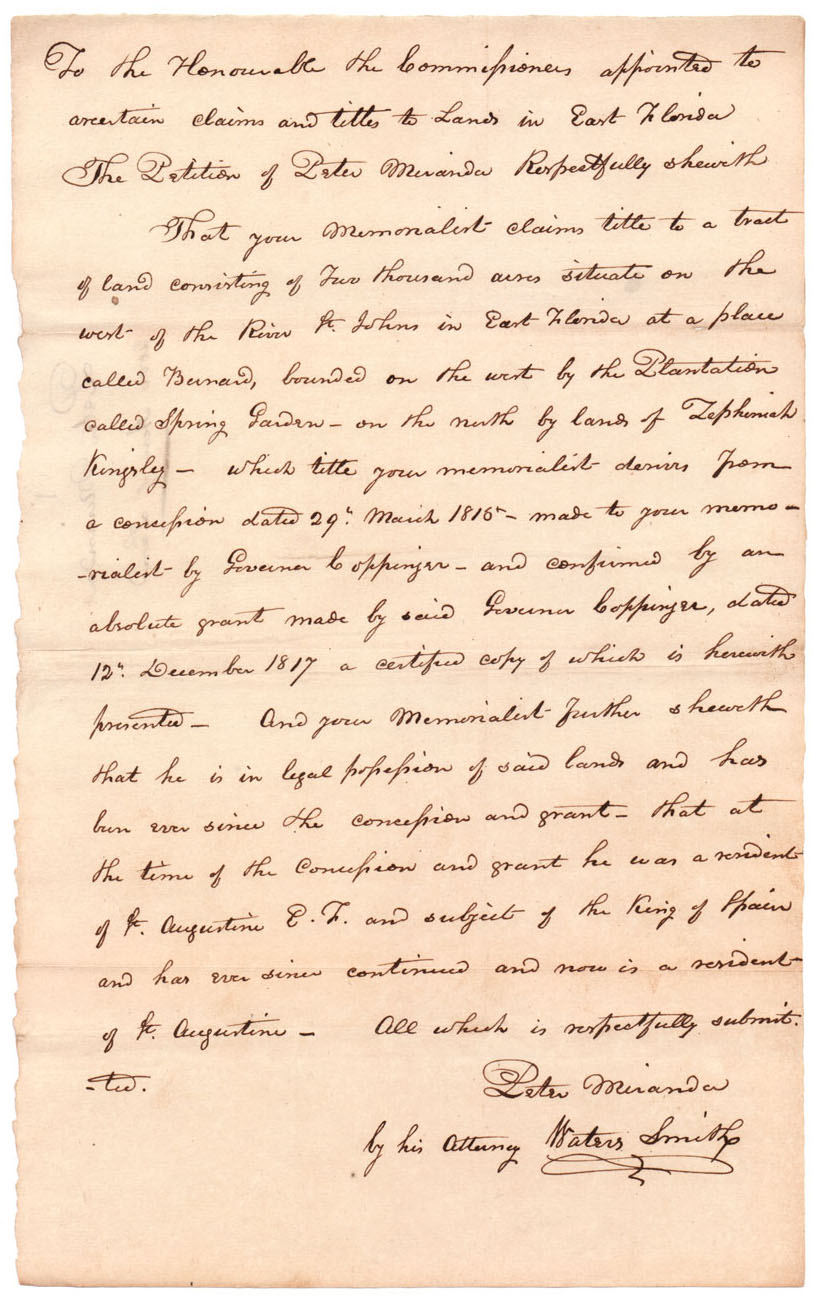 To the Honourable the Commissioners appointed to
ascertain claims and titles to Lands in East Florida
The Petition of Peter Miranda Respectfully sheweth
That your Memorialist claims title to a tract
of land consisting of Two thousand acres situate on the
west of the River St. Johns in East Florida at a place
called Bernard, bounded on the west by the Plantation
called Spring Garden - on the north by lands of Zephiniah
Kingsley - which title your memorialist derives from
a concession dated 29th. March 1815 - made to your memo-
-rialist by Governor Coppinger - and confirmed by an
absolute grant made by said Governor Coppinger, dated
12th. December 1817 a certified copy of which is herewith
presented - And your Memorialist further sheweth
that he is in legal possession of said lands and has
been ever since the concession and grant - that at
the time of the Concession and grant he was a resident
of St. Augustine E. F. and subject of the King of Spain
and has ever since continued and now is a resident
of St. Augustine - All which is respectfully submit.
-ted.
Peter Miranda
by his Attorney Waters Smith